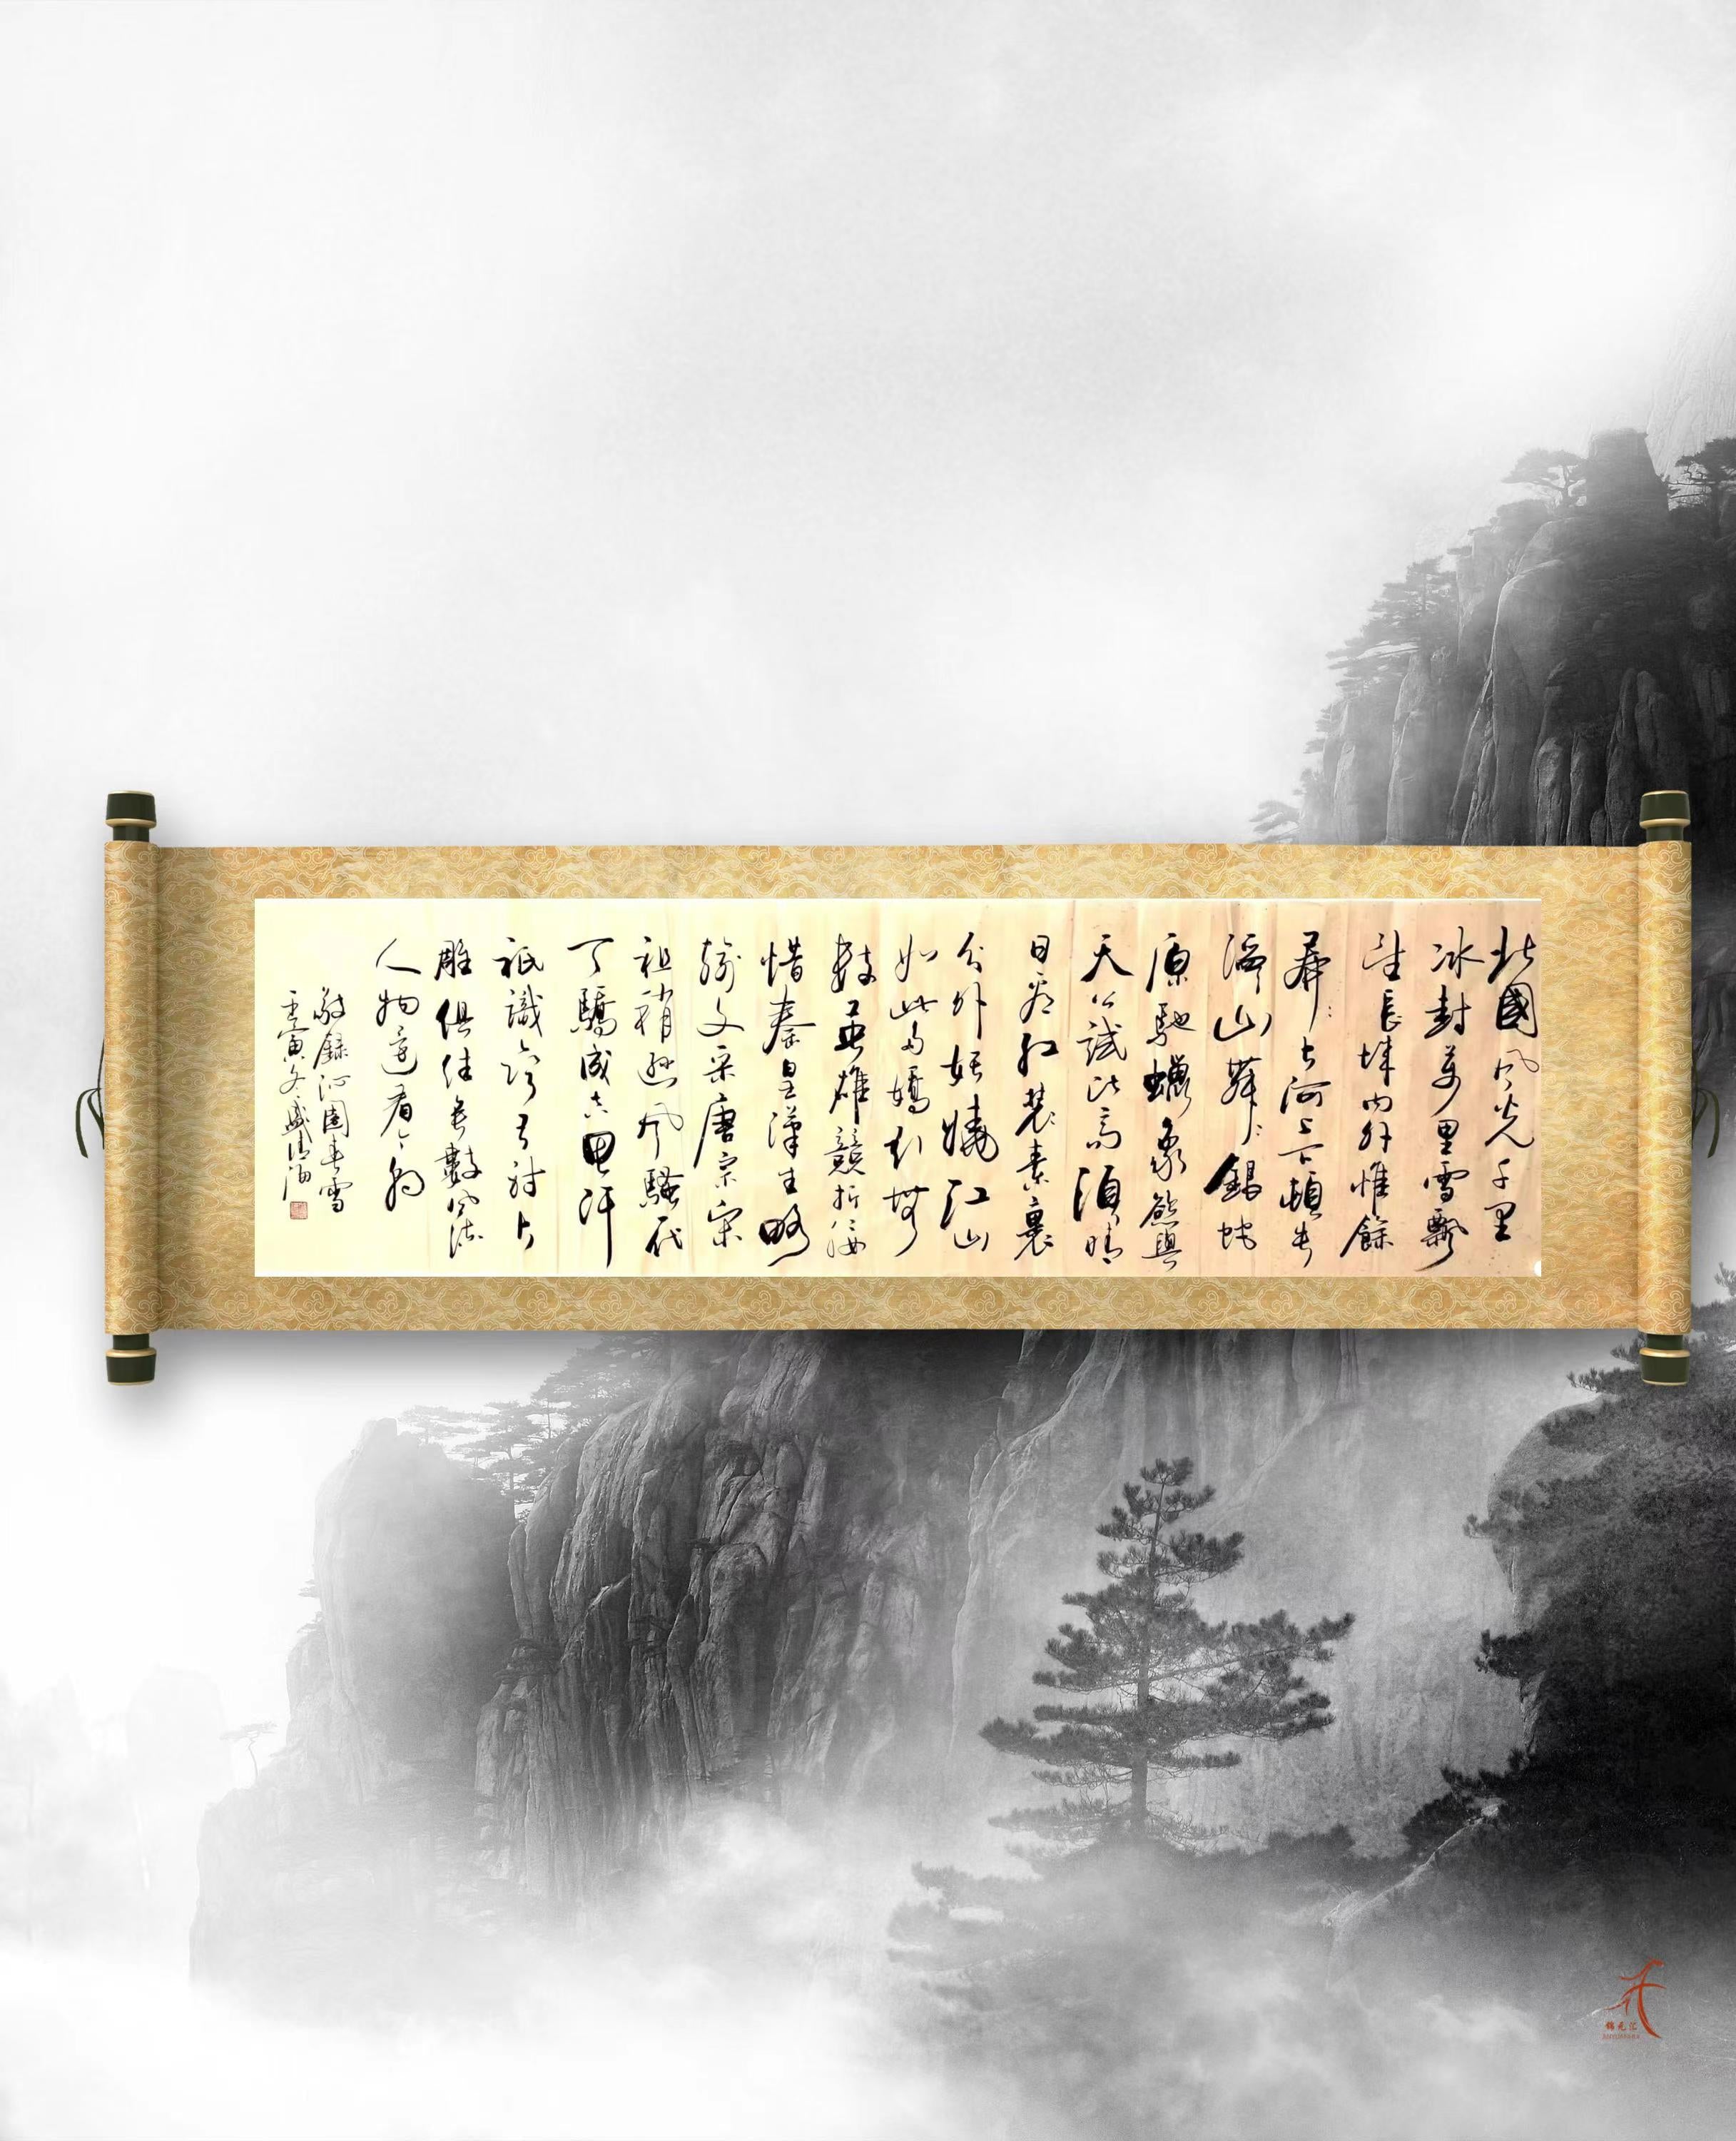 北國風光千里
冰封萬里雪飄
望長城內外惟餘
莽〻大河上下頓失
滔山舞〻銀蛇
原馳蠟象慾與
天公試比高須晴
日看紅裝素裹
分外妖嬈江山
如此多嬌引無
數英雄競折腰
惜秦皇漢武略
輸文采唐宗宋
祖稍遜風騷代
天驕成吉思汗
祇識彎弓射大
雕俱往矣數風流
人物還看今朝
敬錄沁園春雪
壬寅冬